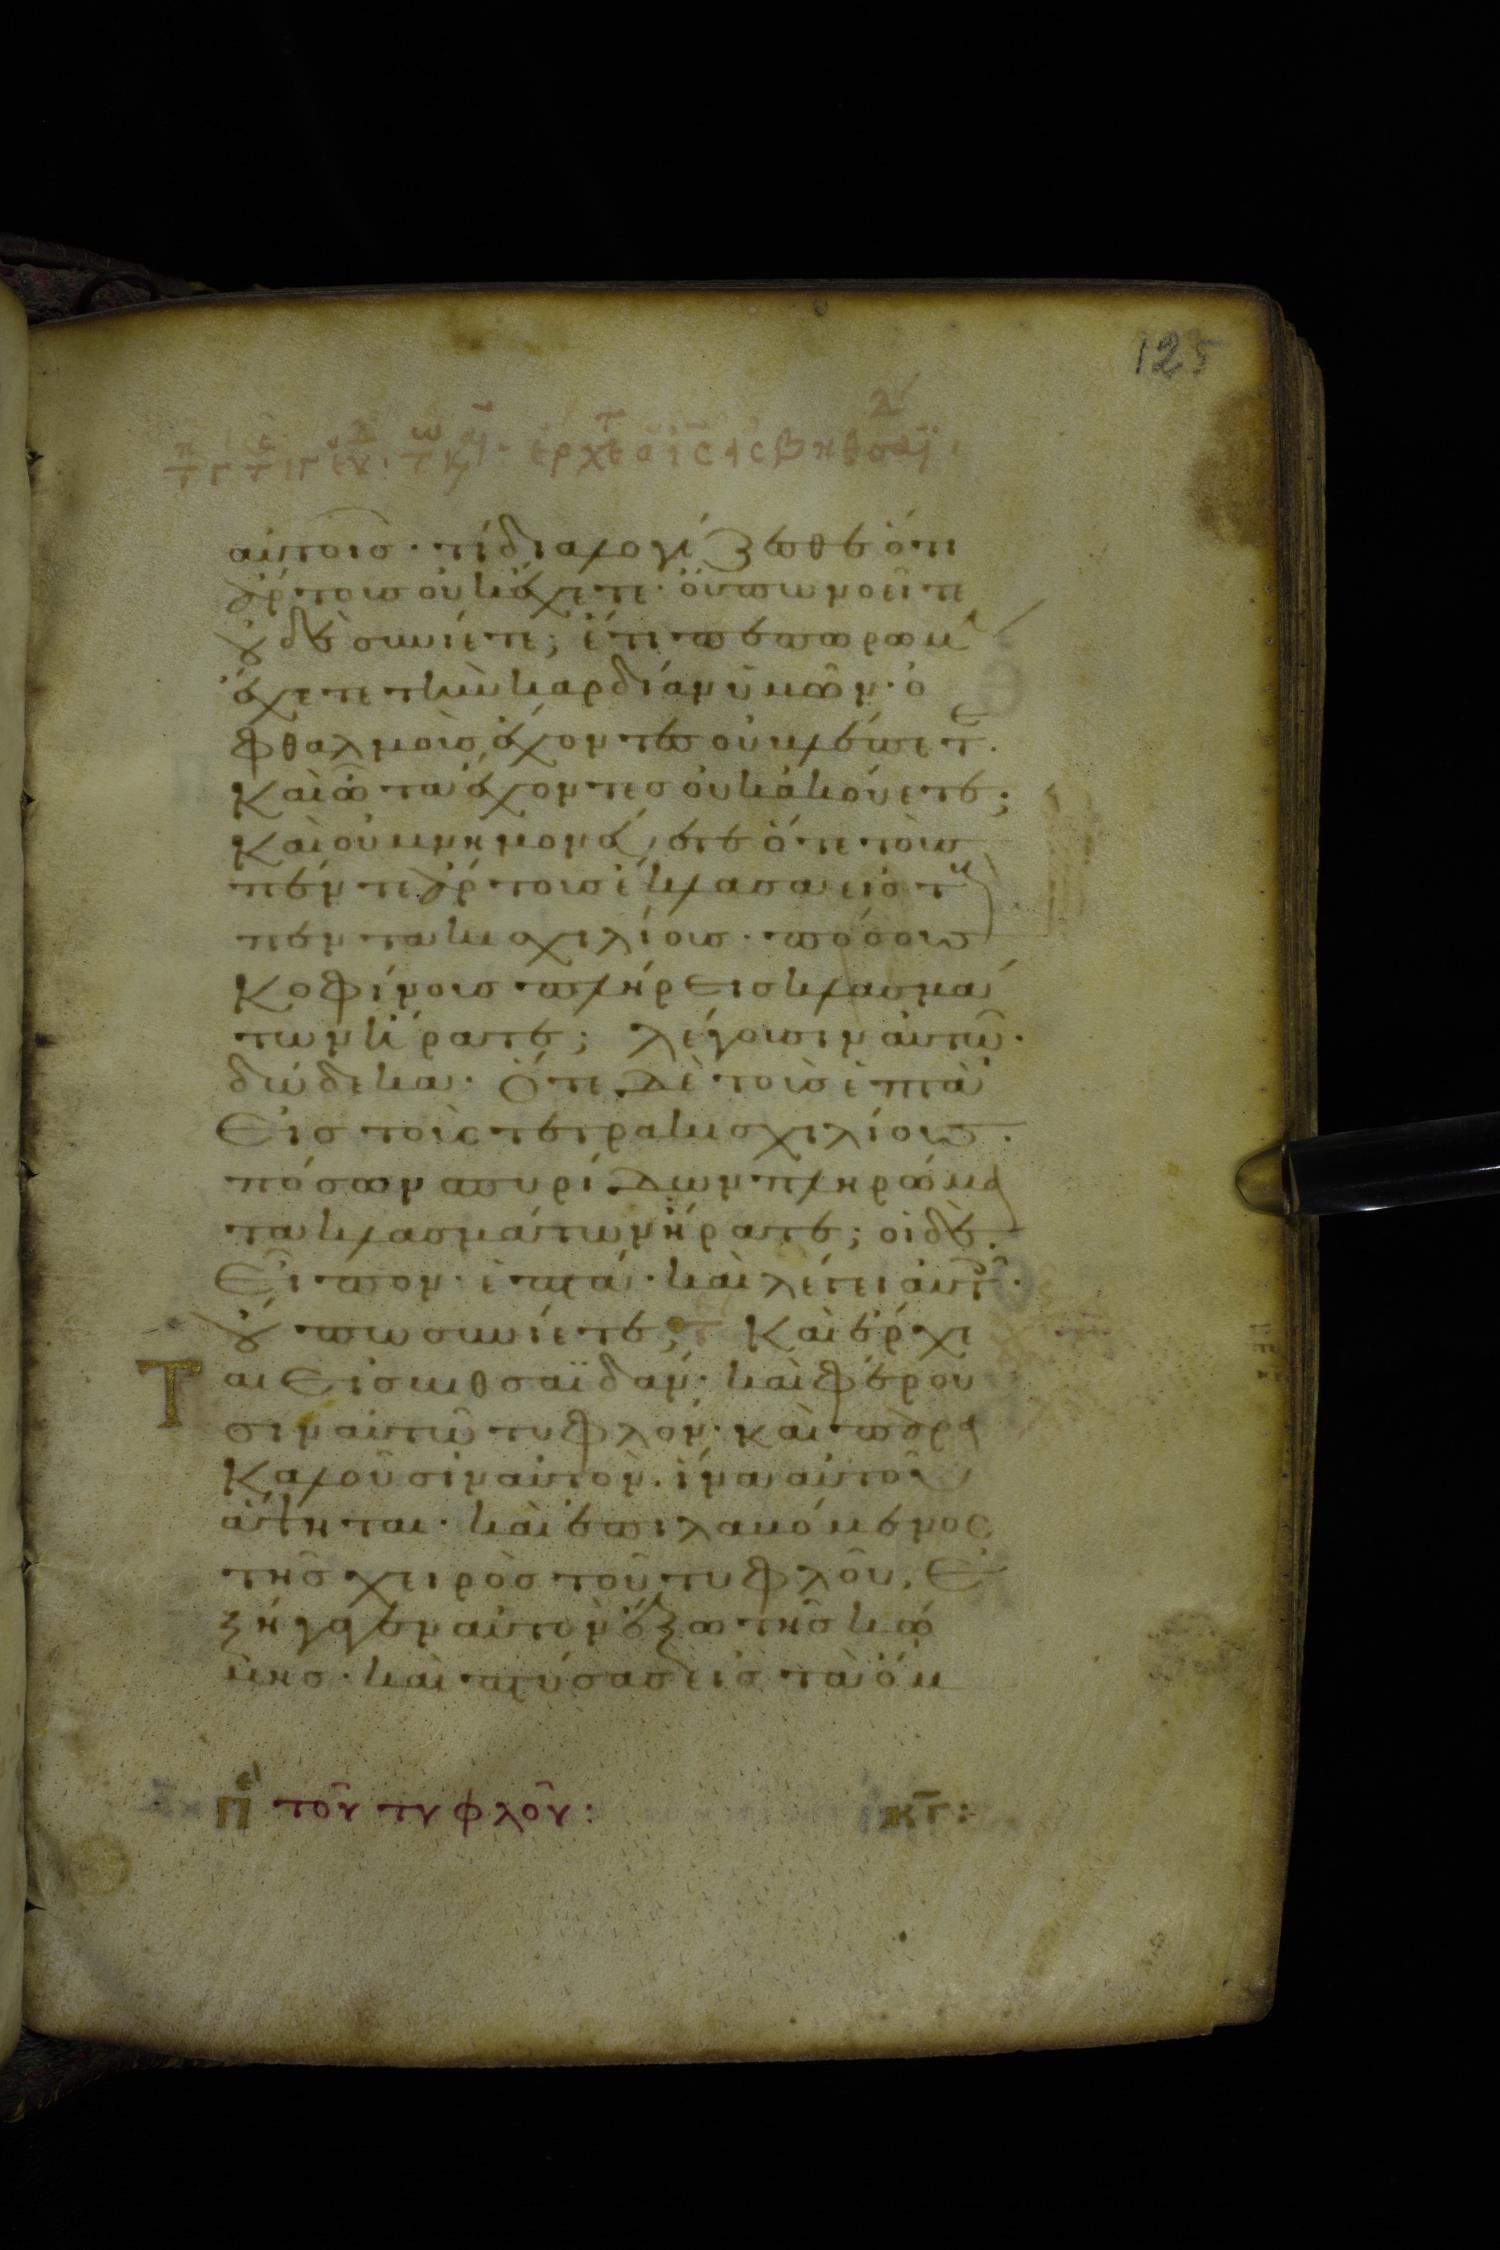 125
αὐτοῖσ· τί διαλογίζεσθε ὅτι
ἄρτουσ οὐκ ἔχετε· οὔπω νοεῖτε
οὐδὲ συνίετε; ἔτι πεπωρωμ
ἔχετε τὴν καρδίαν ὑμῶν· ὀ
φθαλμοὺσ ἔχοντεσ οὐ βλέπετε.
Καὶ ὦτα ἔχοντεσ οὐκ ἀκούετε;
Καὶ οὐ μνημονεύετε ὅτε τοὺσ
πέντε ἄρτουσ ἔκλασα εἰσ τ
πεντακισχιλίουσ· πόσουσ
Κοφίνουσ πλήρεισ κλασμά
των ἤρατε; λέγουσιν αὐτῶ·
δώδεκα· Ὅτε δὲ τοὺσ ἑπτὰ
Εἰσ τοὺς τετρακισχιλίουσ·
πόσων σπυρίδων πληρώμα
τα κλασμάτων ἤρατε; οἱ δὲ
Εἶπον· ἑπτά· καὶ λέγει αὐτοῖσ·
οὔπω συνίετε; Καὶ ἔρχε
Ται Εἰσ βηθσαϊδάν· καὶ φέρου
σιν αὐτῶ τυφλὸν· καὶ παρα
Καλοῦσιν αὐτὸν· ἵνα αὐτοῦ
ἅψηται· καὶ ἐπιλαβόμενος
τῆσ χειρὸσ τοῦ τυφλοῦ, Ἐ
ξήγαγεν αὐτὸν ἔξω τῆσ κώ
μησ· καὶ πτύσασ εἰσ τὰ ὄμ
Πε τοῦ τυφλοῦ: